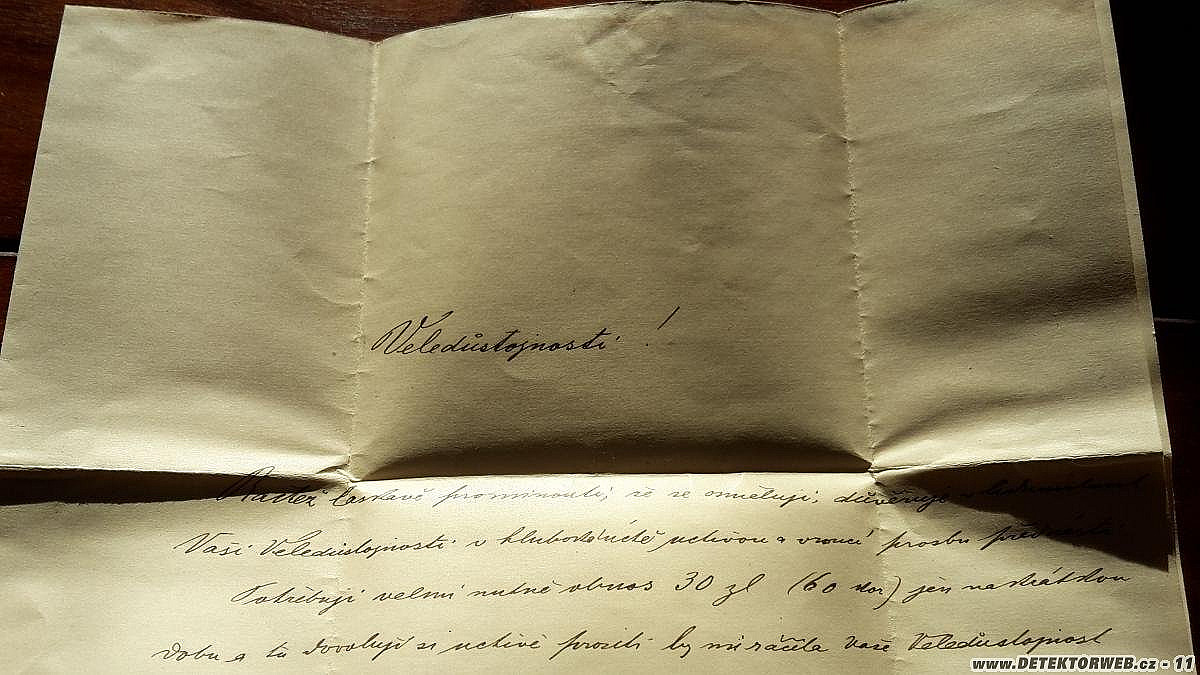 Veledůstojnosti!
Račtež laskavě prominouti, že se osměluji, důvěřuje v
Vaší Veledůstojnosti v hluboké úctě uctivou a vroucí prosbu přednésti.
Potřebuji velmi nutně obnos 30 zl (60 kor) jen na krátkou
dobu a tu dovoluji si uctivě prositi by mi ráčila vaše Veledůstojnost
www.DETEKTORWEB.cz - 11